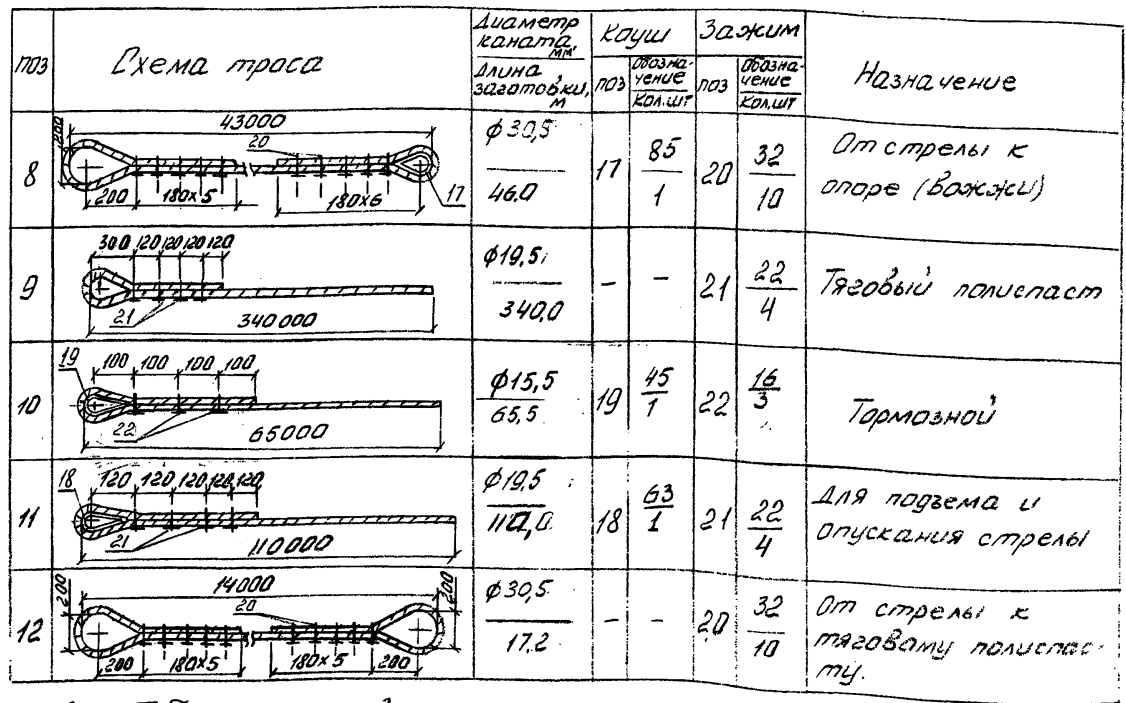 поз Схема троса Диаметр каната, мм Коуш Зажим Назначение
Длина заготовки, м поз Обозначение Кол. шт поз Обозначение Кол. шт
43000
200 20
8 200 180х5 180х6 17 ϕ30,5 46.0 17 85 1 20 32 10 От стрелы к
опоре (Вожжи)
300 120 120 120 120
9 21 340000 ϕ19,5 340,0 - - 21 22 4 Тяговый полиспаст
19 100 100 100 100
10 22 65000 ϕ15,5 65,5 19 45 1 22 16 3 Тормозной
18 120 120 120 120 120
11 21 110000 ϕ19,5 110,0 18 63 1 21 22 4 Для подъема и
опускания стрелы
200 14000 200
20
12 200 180х5 180х5 200 ϕ30,5 17.2 - - 20 32 10 От стрелы к
тяговому полиспас-
ту.